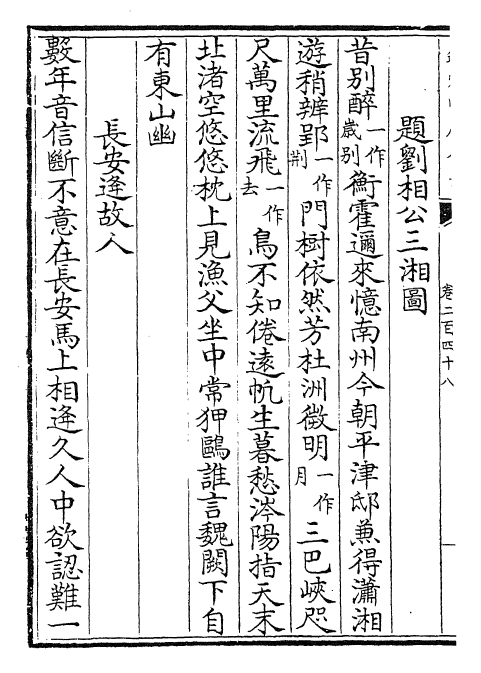 卷二百四十八
題劉相公三湘圖
昔别醉一作歲别衡霍邇來憶南州今朝平津邸兼得瀟湘
遊稍辨郢一作荆門樹依然芳杜洲微明一作月三巴峽咫
尺萬里流飛一作去鳥不知倦逺帆生暮愁涔陽指天末
北渚空悠悠枕上見漁父坐中常狎鷗誰言魏闕下自
有東山幽
長安逢故人
數年音信斷不意在長安馬上相逢久人中欲認難一